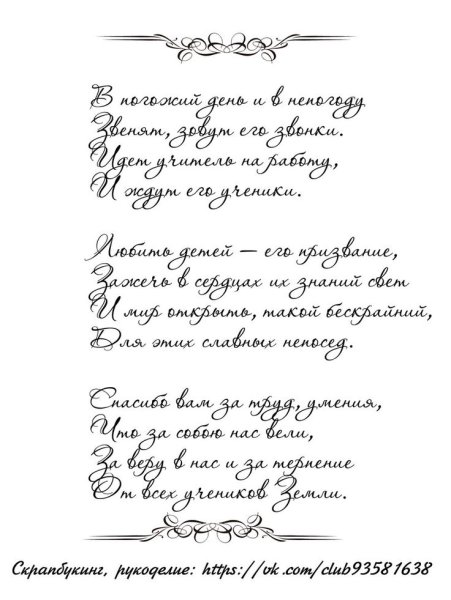 В погожий день и в непогоду
Звенят, зовут его звонки.
Идет учитель на работу,
И ждут его ученики.
Любить детей — его призвание,
Зажечь в сердцах их знаний свет
И мир открыть, такой бескрайний,
Для этих славных непосед.
Спасибо вам за труд, умения,
Что за собою нас вели,
За веру в нас и за терпение
От всех учеников Земли.
Скрапбукинг, рукоделие: https://vk.com/club93581638